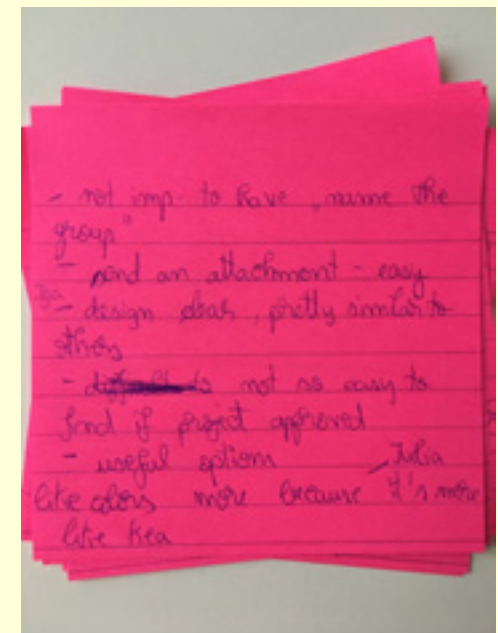 - not imp. to have „name the
group"
- send an attachment - easy
- design clear, pretty similar to
others
- is not so easy to
find if project approved
- useful options Julia
like colors more because it's more
like Kea